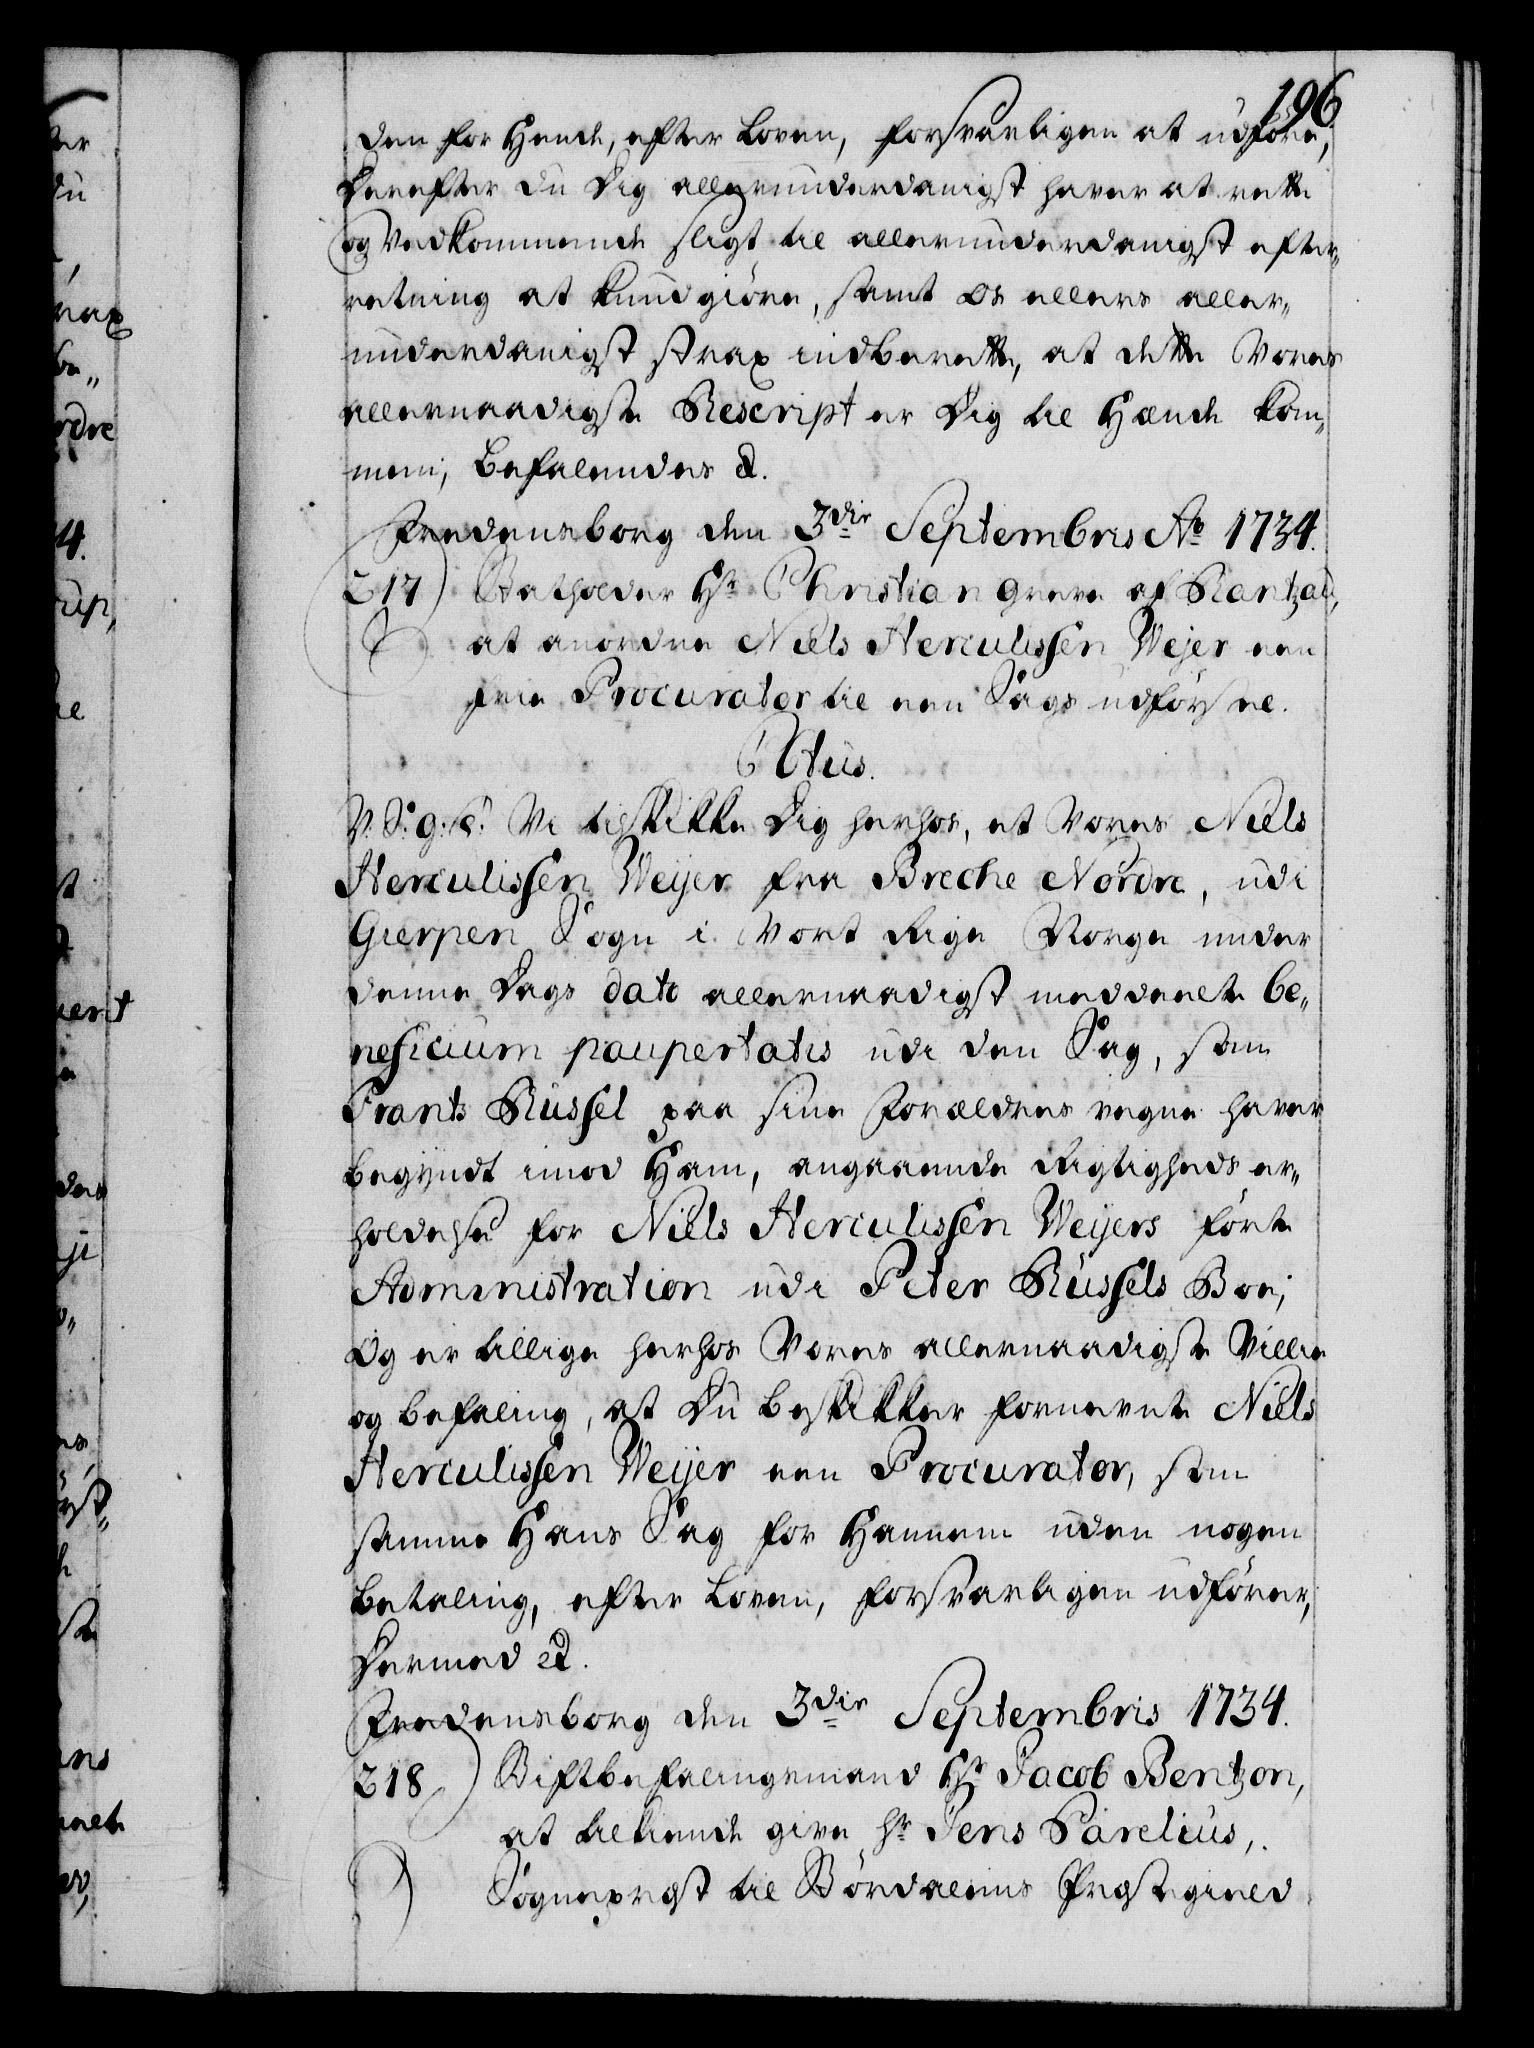 196
den for Hende, efter Loven, forsvarligen at udføre,
Derefter du Dig allerunderdanigst haver at rette
og Vedkommende sligt til allerunderdanigst efter„
retning at kundgiøre, samt os ellers aller„
underdanigst strax indberette, at dette Vores
allernaadigste Rescript er Dig til Hænde kom„
men, Befalendes &.
Fredensborg den 3die Septembris Ao 1734.
217) Statholder Hr Christian Greve af Rantzau,
at anordne Niels Herculissen Weyer een
frie Procurator til een Sags udførsel.
C Vtus.
V. S: g: T: Vi tilskikke Dig herhos, et Vores Niels
Herculissen Weyer fra Breche Nordre, udi
Gierpen Sogn i Vort Rige Norge under
denne Dags dato allernaadigst meddeelte be„
neficium paupertatis udi den Sag, som
Frants Russel paa sine Forældres vegne haver
begyndt imod Ham, angaaende Rigtigheds er„
holdelse for Niels Herculissen Weyers førte
Administration udi Peter Russels Boe;
Og er tillige herhos Vores allernaadigste Villie
og befaling, at Du beskikker fornevnte Niels
Herculissen Weyer een Procurator, som
samme Hans Sag for Hannem uden nogen
betaling, efter Loven, forsvarligen udfører,
Dermed &.
Fredensborg den 3die Septembris 1734.
218) Stiftbefalingsmand Hr Jacob Bentzon,
at tilkiende give Hr Jens Parelius,
Sogneprest til Størdalens Prestegield